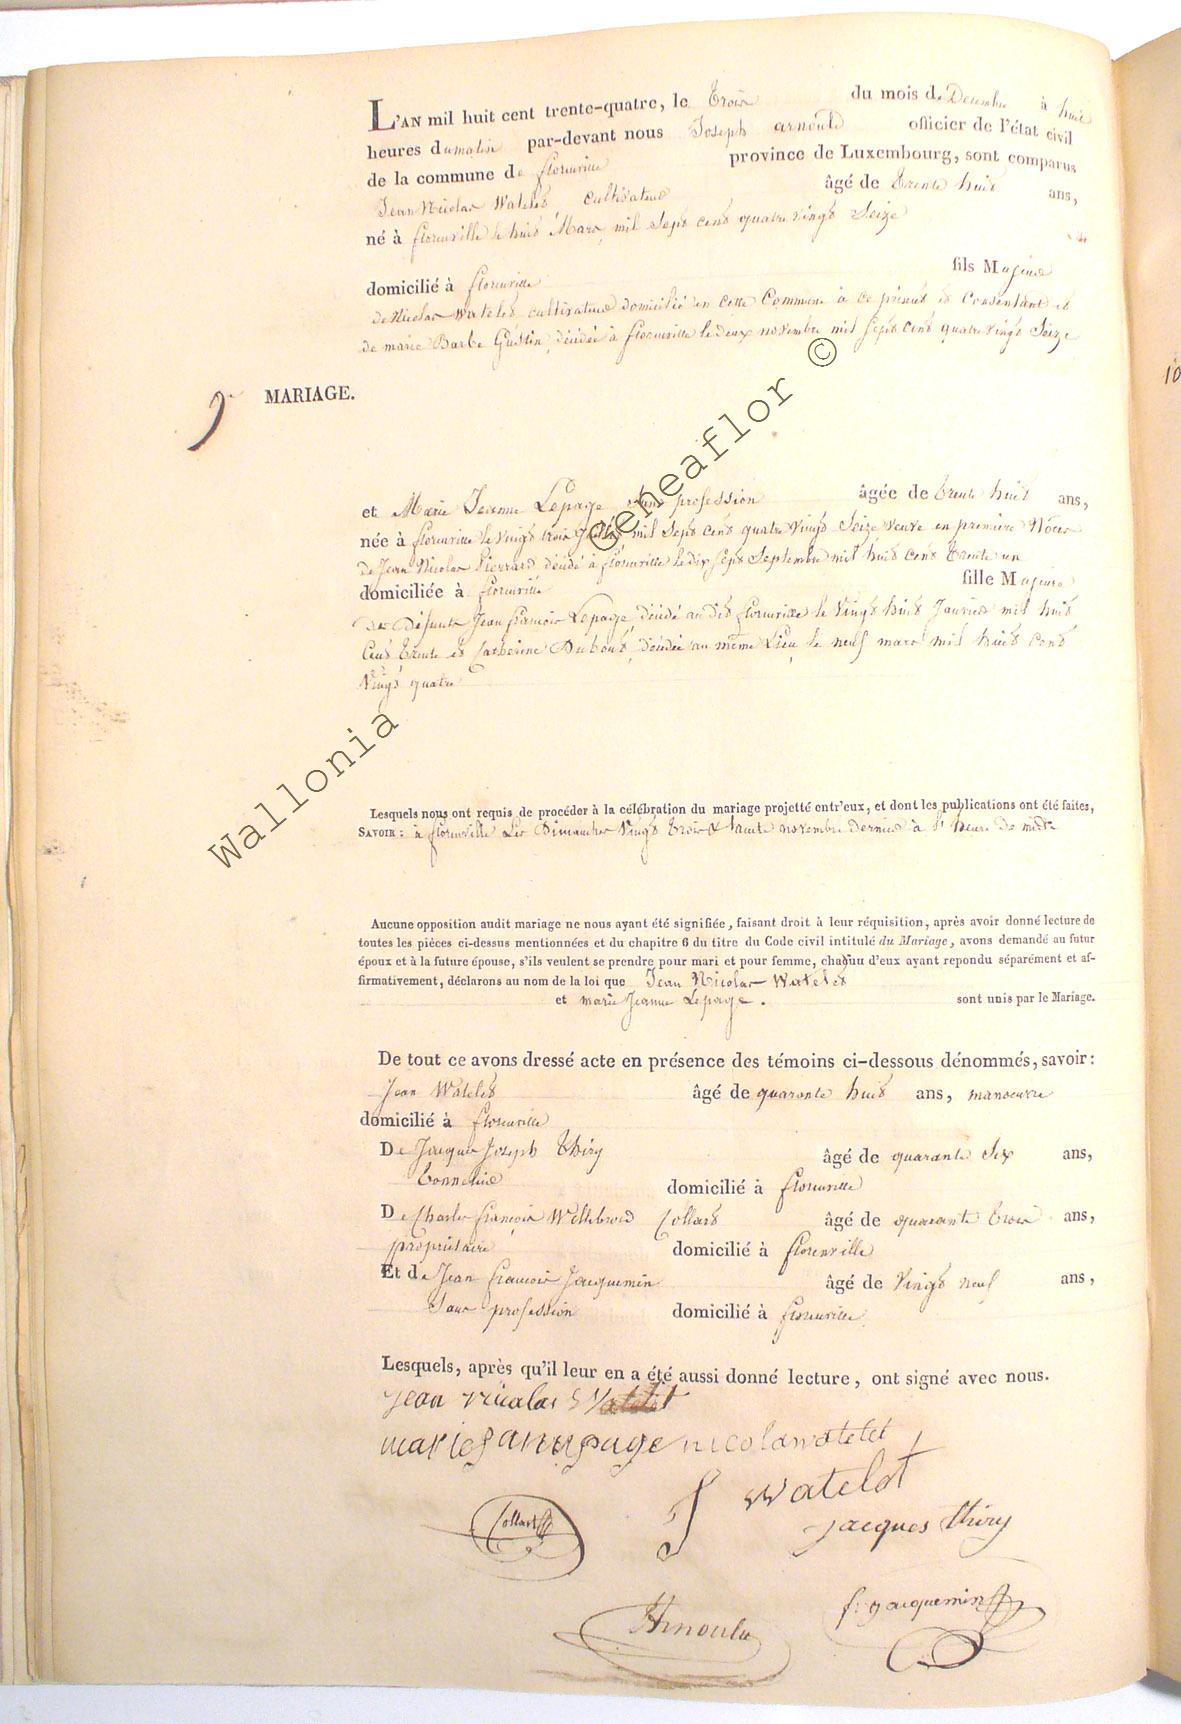 L'AN mil huit cent trente-quatre, le Trois du mois de Decembre à huit
heures du matin par-devant nous Joseph arnould officier de l'état civil
de la commune de florenville province de Luxembourg, sont comparus
Jean Nicolas Watelet Cultivateur âgé de trente huit ans,
né à florenville le huit Mars mil Sept cent quatre vingt Seize
domicilié à florenville fils Majeur
de Nicolas Watelet cultivateur domicilié en cette Commune à ce présent et Consentant et
de marie Barbe Gustin, décédée à florenville le deux novembre mil sept cent quatre vingt Seize
9e MARIAGE.
10
et Marie Jeanne Lepage sans profession âgée de trente huit ans,
née à florenville le vingt trois mil Sept cent quatre vingt Seize veuve en première Noces
de Jean Nicolas Pierrard décédé à florenville le dix sept Septembre mil huit cent trente un
domiciliée à florenville fille Majeure
de Défunts Jean francois Lepage décédé au dit florenville le vingt huit Janvier mil huit
Cent trente et Catherine Dubout, décédée au même Lieu, le neuf mars mil huit cent
vingt quatre
Lesquels nous ont requis de procéder à la célébration du mariage projetté entr'eux, et dont les publications ont été faites,
SAVOIR : à florenville Les Dimanches vingt trois & trente novembre dernier à l'heure de midi
Aucune opposition audit mariage ne nous ayant été signifiée, faisant droit à leur réquisition, après avoir donné lecture de
toutes les pièces ci-dessus mentionnées et du chapitre 6 du titre du Code civil intitulé du Mariage, avons demandé au futur
époux et à la future épouse, s'ils veulent se prendre pour mari et pour femme, chacun d'eux ayant repondu séparément et af-
firmativement, déclarons au nom de la loi que Jean Nicolas Watelet
et marie Jeanne Lepage. sont unis par le Mariage.
De tout ce avons dressé acte en présence des témoins ci-dessous dénommés, savoir :
Jean Watelet âgé de quarante huit ans, manoeuvre
domicilié à florenville
De Jacques Joseph Thiry âgé de quarante Six ans,
tonnelier domicilié à florenville
De Charles françois Willebrord Collard âgé de quarante trois ans,
propriétaire domicilié à florenville
Et de Jean francois Jacquemin âgé de vingt neuf ans,
Sans profession domicilié à florenville
Lesquels, après qu'il leur en a été aussi donné lecture, ont signé avec nous.
jean nicolas Watelet
nicolas watelet
J Watelet
Collard
jacques thiry
Arnould
f: jacquemin
Wallonia Geneaflor ©